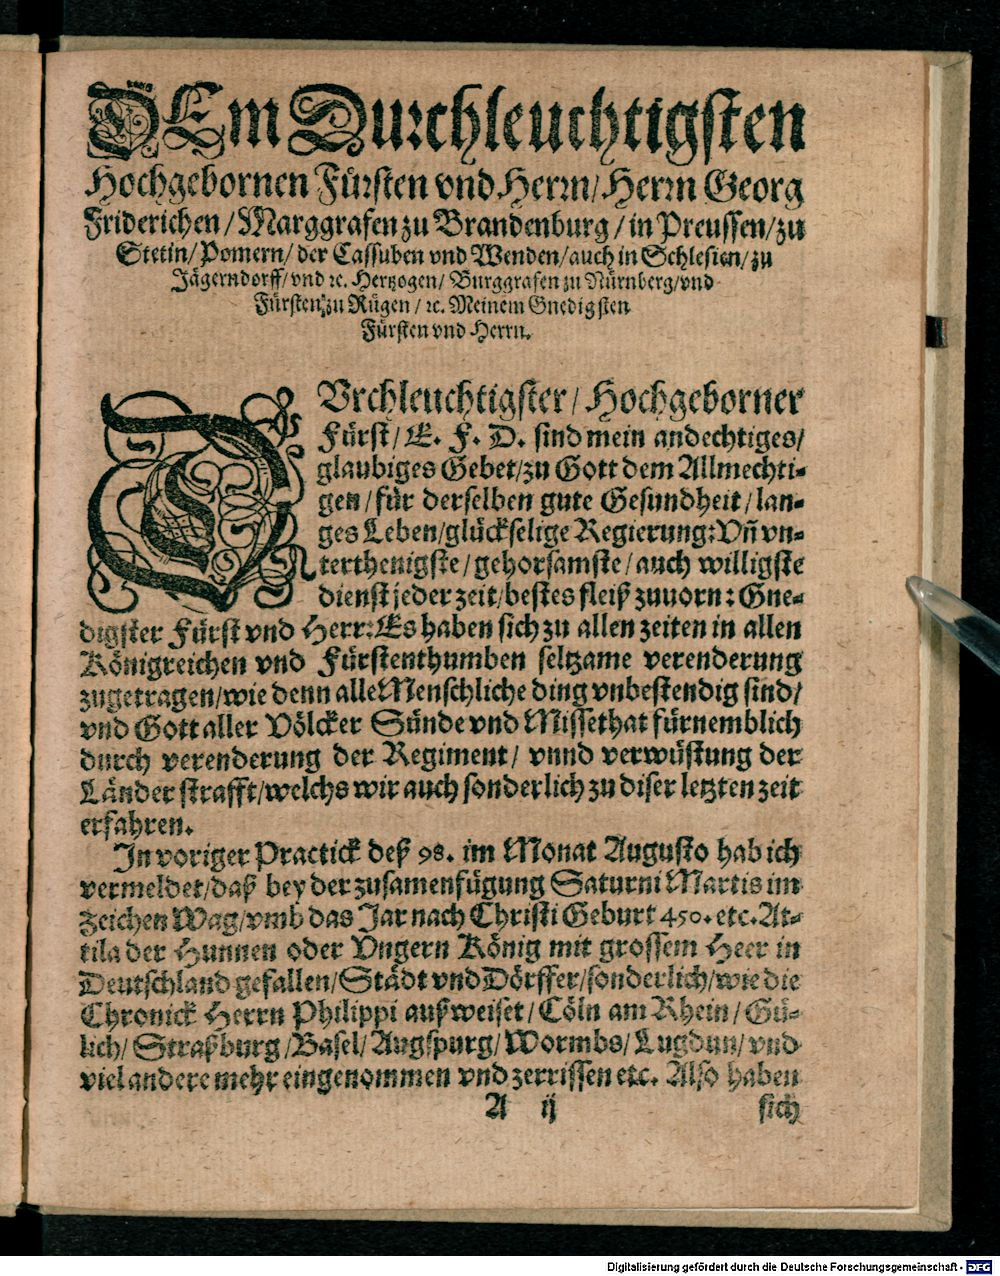 DEm Durchleuchtigsten
Hochgebornen Fürsten vnd Herrn/ Herrn Georg
Friderichen/ Marggrafen zu Brandenburg/ in Preussen/ zu
Stetin/ Pomern/ der Cassuben vnd Wenden/ auch in Schlesien/ zu
Jägerndorff/ vnd ꝛc. Hertzogen/ Burggrafen zu Nürnberg/ vnd
Fürsten zu Rügen/ ꝛc. Meinem Gnedigsten
Fürsten vnd Herrn.
DVrchleuchtigster/ Hochgeborner
Fürst/ E. F. D. sind mein andechtiges/
glaubiges Gebet/ zu Gott dem Allmechti-
gen/ für derselben gute Gesundheit/ lan-
ges Leben/ glückselige Regierung: Vñ vn-
terthenigste/ gehorsamste/ auch willigste
dienst jeder zeit/ bestes fleiß zuuorn: Gne-
digster Fürst vnd Herr: Es haben sich zu allen zeiten in allen
Königreichen vnd Fürstenthumben seltzame verenderung
zugetragen/ wie denn alle Menschliche ding vnbestendig sind/
vnd Gott aller Völcker Sünde vnd Missethat fürnemblich
durch verenderung der Regiment/ vnnd verwüstung der
Länder strafft/ welchs wir auch sonderlich zu diser letzten zeit
erfahren.
In voriger Practick deß 98. im Monat Augusto hab ich
vermeldet/ daß bey der zusamenfügung Saturni Martis im
Zeichen Wag/ vmb das Jar nach Christi Geburt 450. etc. At-
tila der Hunnen oder Vngern König mit grossem Heer in
Deutschland gefallen/ Städt vnd Dörffer/ sonderlich/ wie die
Chronick Herrn Philippi außweiset/ Cöln am Rhein/ Gü-
lich/ Straßburg/ Basel/ Augspurg/ Wormbs/ Lugdun/ vnd
viel andere mehr eingenommen vnd zerrissen etc. Also haben
A ij sich
Digitalisierung gefördert durch die Deutsche Forschungsgemeinschaft - DFG